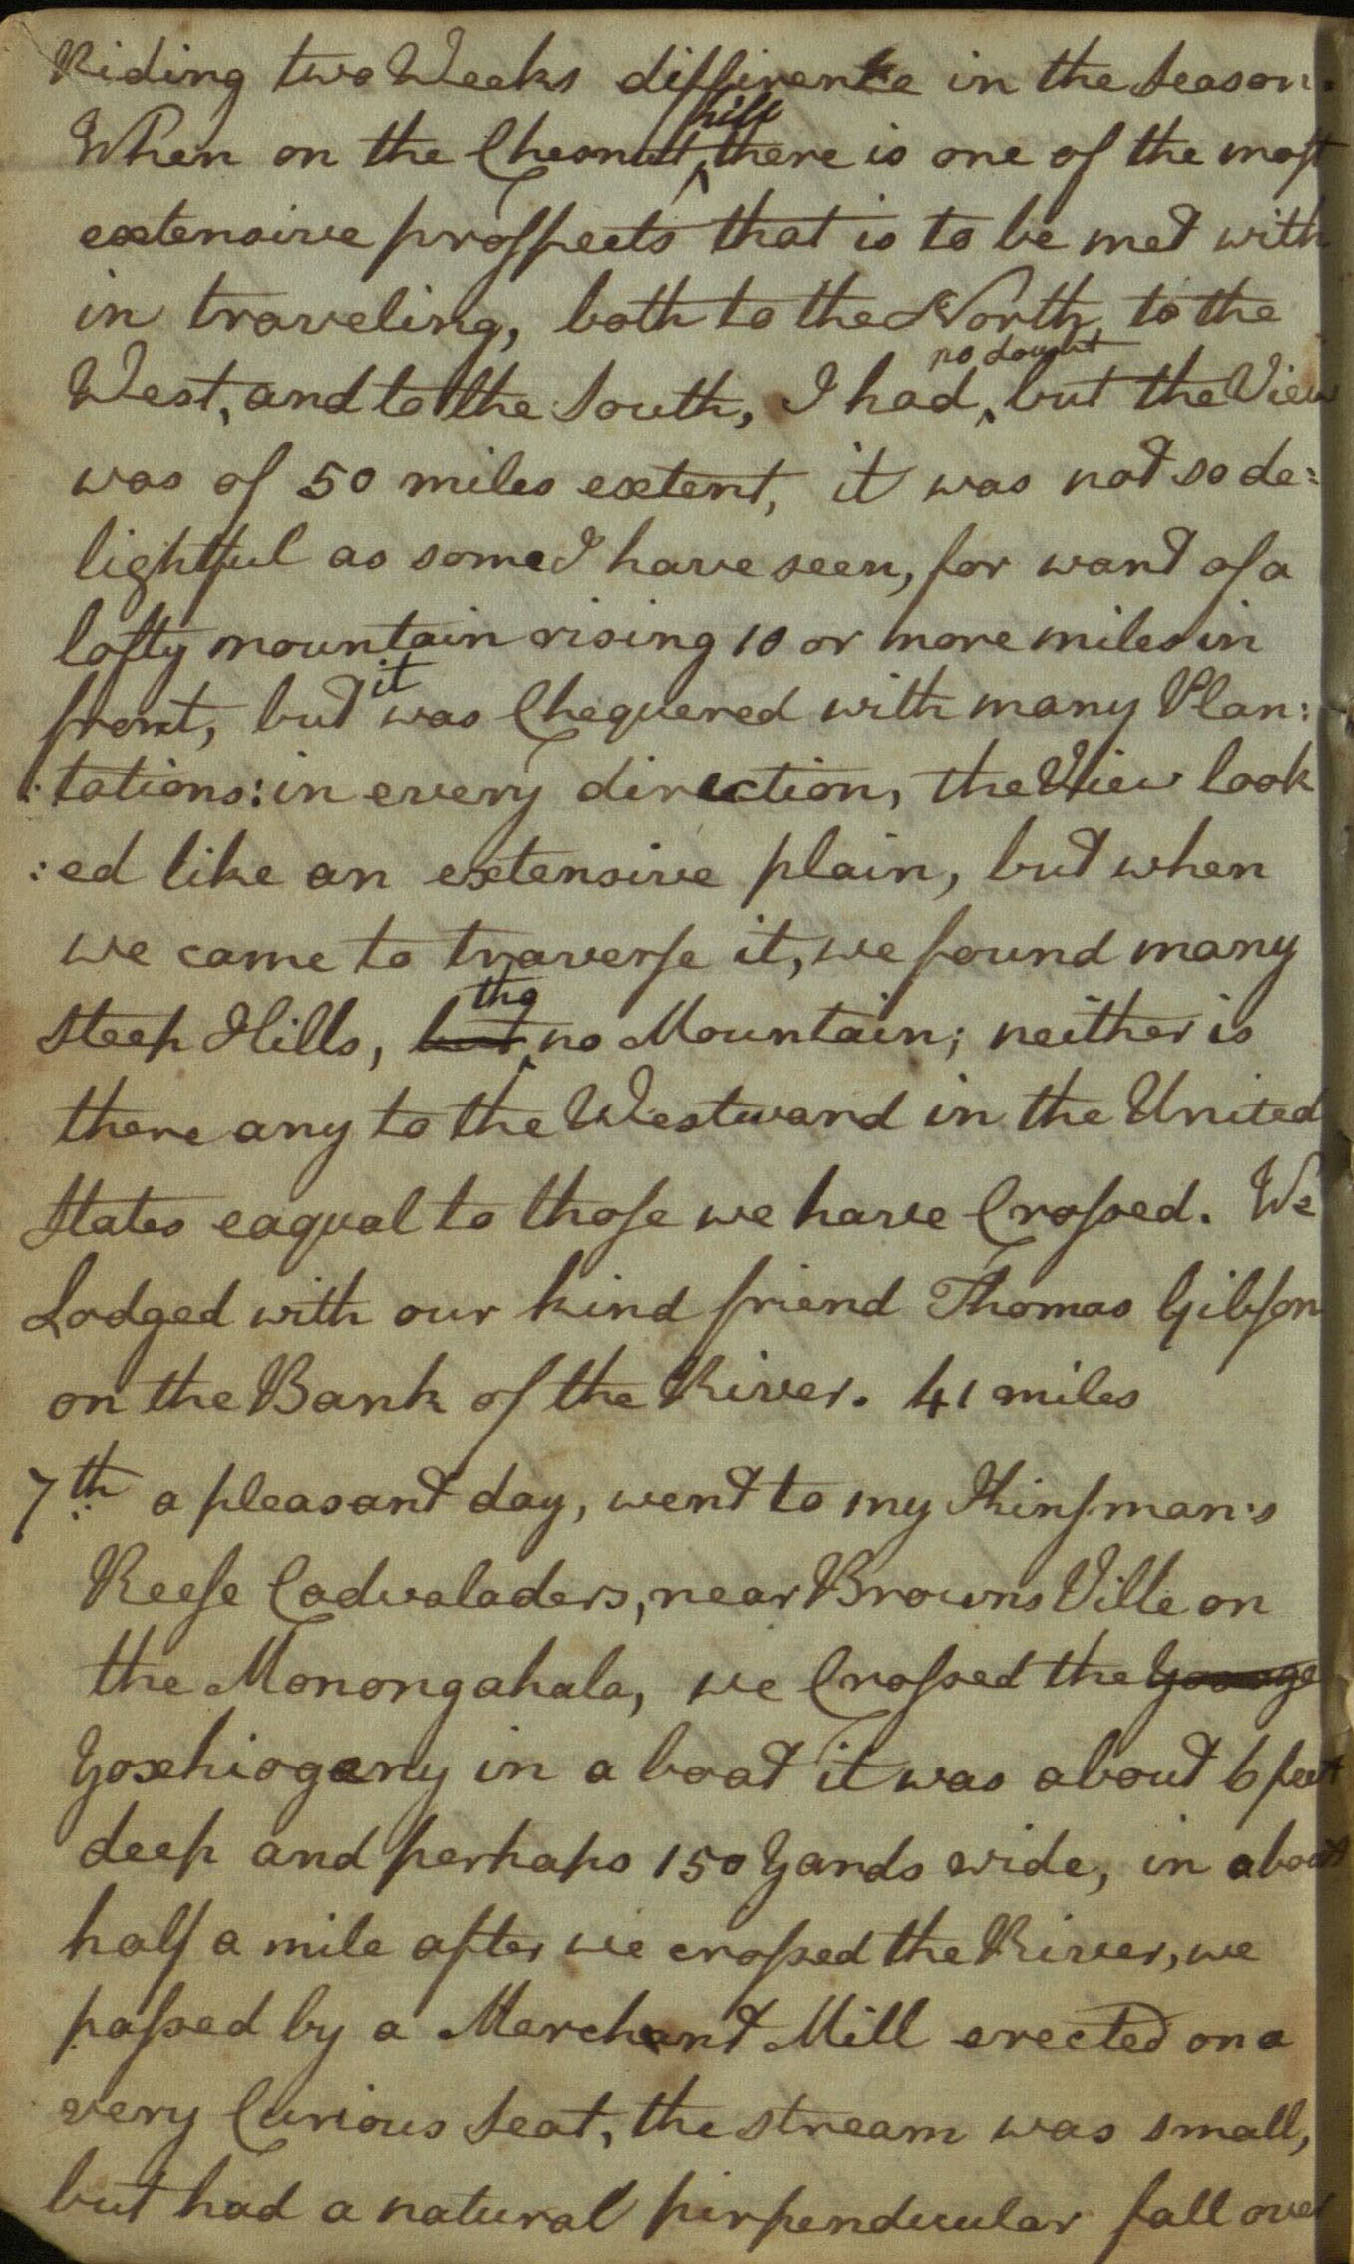 Riding two Weeks difference in the Season.
When on the Chesnutt hill there is one of the most
extensive prospects that is to be met with
in traveling, both to the North, to the
West, and to the South, I had, no dought but the View
was of 50 miles extent, it was not so de=
lightful as some I have seen, for want of a
lofty mountain rising 10 or more miles in
front, but it was Chequered with many Plan:
:tations: in every direction, the View look
:ed like an extensive plain, but when
we came to traverse it, we found many
Steep Hills, but tho no Mountain; neither is
there any to the Westward in the United
States eaqual to those we have Crossed. We
Lodged with our kind friend Thomas Gibson
on the Bank of the River. 41 miles
7th a pleasant day, went to my Kinsman's
Reese Cadwaladers, near Browns Ville on
the Monongahala, we Crossed the
Yoxhiogany in a boat it was about 6 feet
deep and perhaps 150 Yards wide, in about
half a mile after we crossed the River, we
passed by a Merchant Mill erected on a
very Curious Seat, the stream was small,
but had a natural pirpendicular fall over